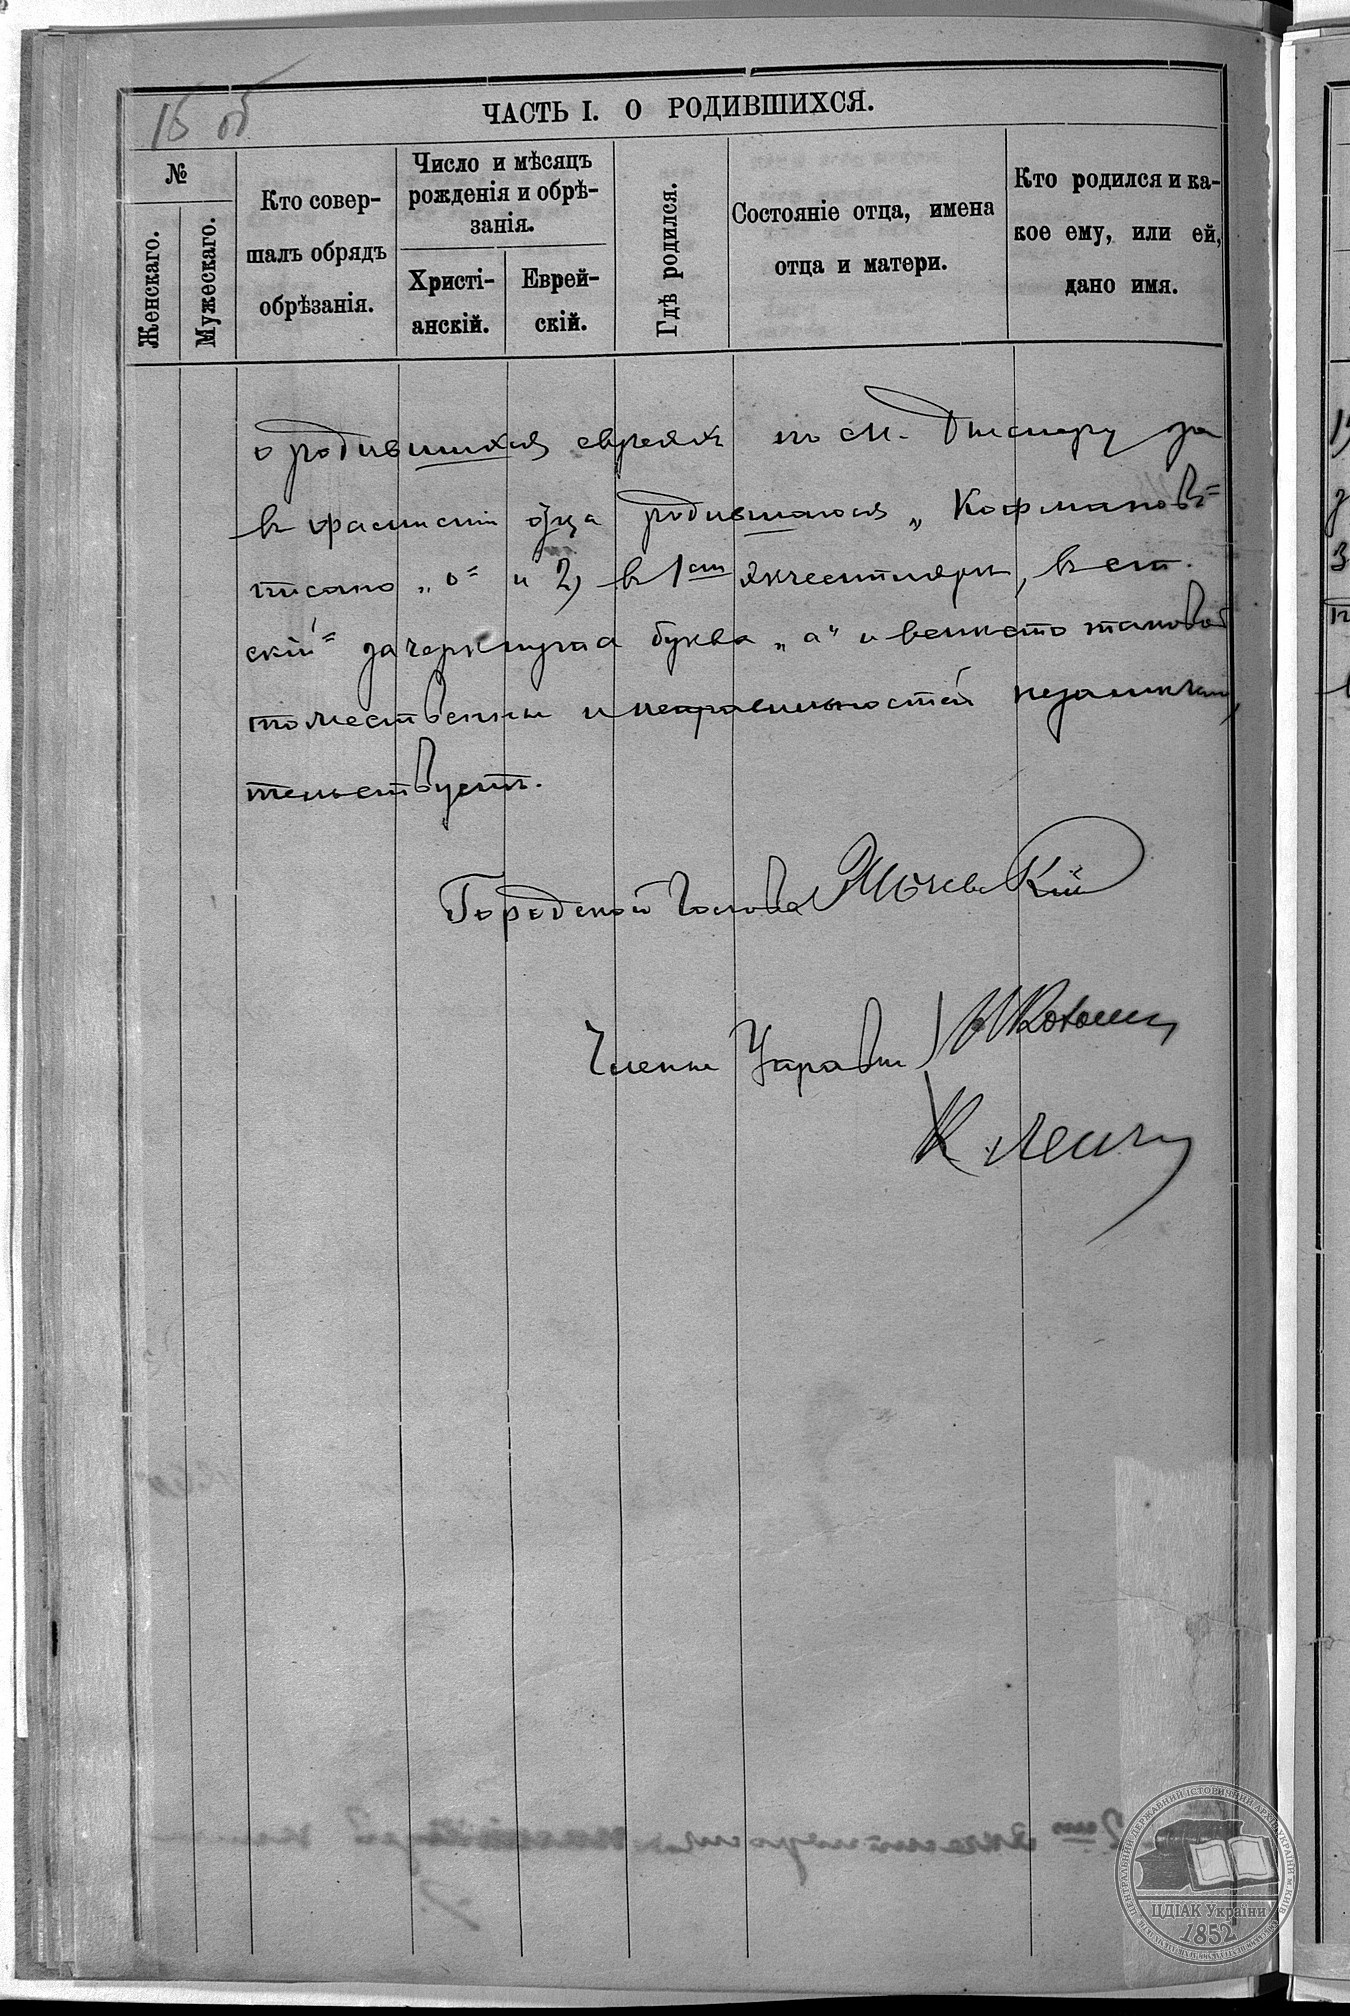 15 об
ЧАСТЬ I. О РОДИВШИХСЯ.
№
Женскаго.
Мужескаго.
Кто совер-
шалъ обрядъ
обрѣзанія.
Число и мѣсяцъ
рожденія и обрѣ-
занія.
Христі-
анскій.
Еврей-
скій.
Гдѣ родился.
Состояніе отца, имена
отца и матери.
Кто родился и ка-
кое ему, или ей,
дано имя.
о родившихся евреях по м. за
в фамилии отца родившагося „Кофманов=
писано „о" и 2) в 1ом экземпляре, в ст.
ский" зачеркнута буква „а" и вместо таковой
тождественны и неправильностей
тельствует.
Городской Голова
Члены Управы
ЦДІАК України
1852